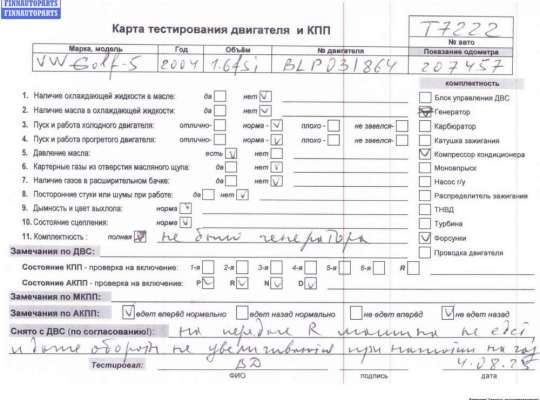 FINNAUTOPARTS
FINNAUTOPARTS
Карта тестирования двигателя и КПП
T7222
№ авто
Марка, модель Год Объём № двигателя Показание одометра
VW Golf-5 2004 1.6fsi BLP031864 207457
комплектность
1. Наличие охлаждающей жидкости в масле: да нет Блок управления ДВС
2. Наличие масла в охлаждающей жидкости: да нет Генератор
3. Пуск и работа холодного двигателя: отлично- норма - плохо - не завелся- Карбюратор
4. Пуск и работа прогретого двигателя: отлично- норма - плохо - не завелся- Катушка зажигания
5. Давление масла: есть нет Компрессор кондиционера
6. Картерные газы из отверстия масляного щупа: да нет Моновпрыск
7. Наличие газов в расширительном бачке: да нет Насос г/у
8. Посторонние стуки или шумы при работе: да нет Распределитель зажигания
9. Дымность и цвет выхлопа: норма ТНВД
10. Состояние сцепления: норма Турбина
11. Комплектность : полная не было генератора Форсунки
Замечания по ДВС: Проводка двигателя
Состояние КПП - проверка на включение: 1-я 2-я 3-я 4-я 5-я 6-я R
Состояние АКПП - проверка на включение: P R N D
Замечания по МКПП:
Замечания по АКПП: едет вперёд нормально едет назад нормально не едет вперёд не едет назад
Снято с ДВС (по согласованию!): на передаче R машина не едет,
и даже обороты не увеличиваются при нажатии на газ
Тестировал: ВД 4.08.25
ФИО подпись дата